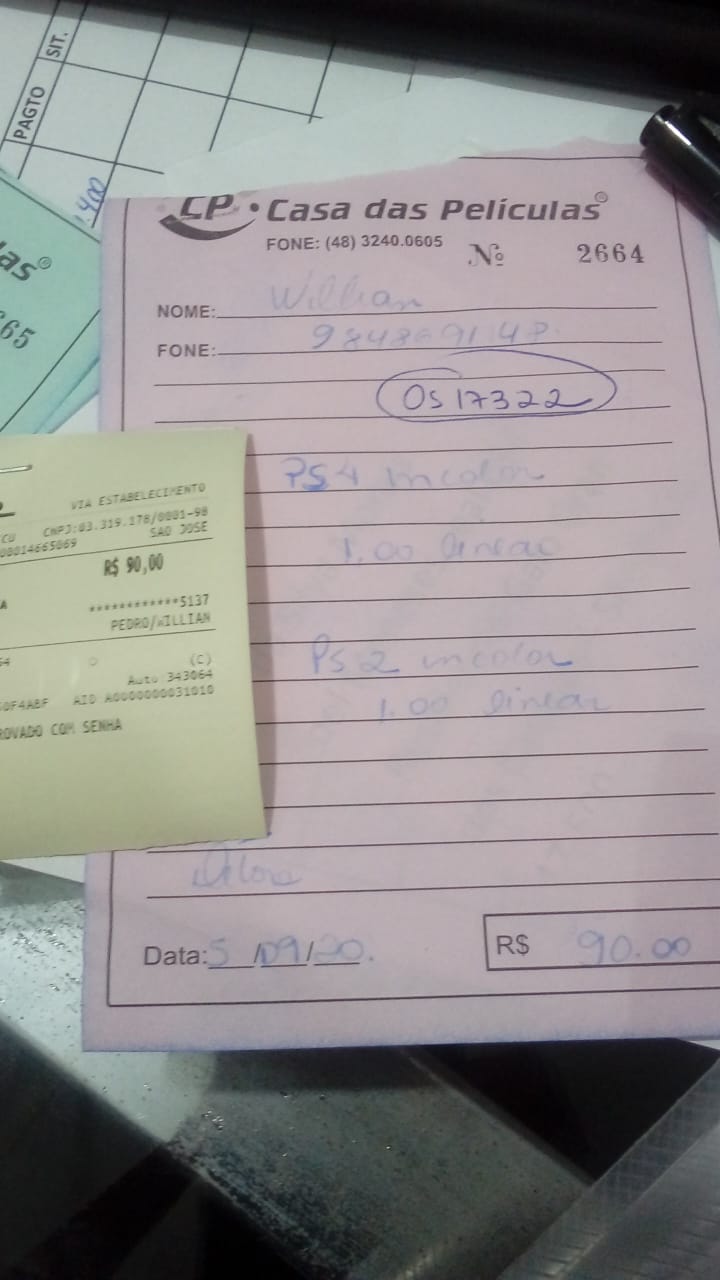 PAGTO
SIT.
1.400
CP • Casa das Películas®
FONE: (48) 3240.0605
Nº 2664
NOME: Willian
FONE:
OS 17322
PS4 incolor
1.00 linear
PS2 incolor
1.00 linear
Data: 5/09/20.
R$ 90.00
las®
65
VIA ESTABELECIMENTO
CNPJ:03.319.178/0001-98
00014665069 SAO JOSE
R$ 90,00
A
************5137
PEDRO/WILLIAN
64 (C)
Auto 343064
0F4ABF AID A0000000031010
ROVADO COM SENHA